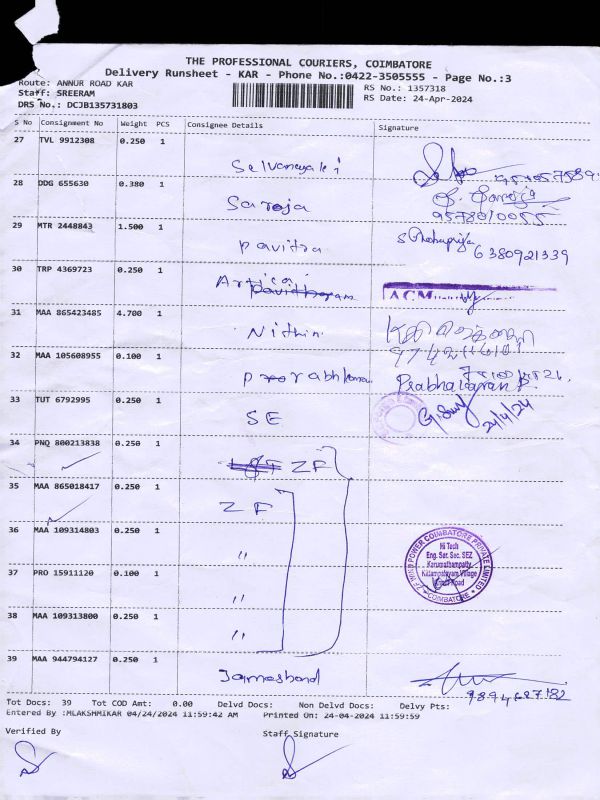 THE PROFESSIONAL COURIERS, COIMBATORE
Delivery Runsheet - KAR - Phone No.:0422-3505555 - Page No.:3
Route: ANNUR ROAD KAR
Staff: SREERAM
DRS No.: DCJB135731803
RS No.: 1357318
RS Date: 24-Apr-2024
S No Consignment No Weight PCS Consignee Details Signature
27 TVL 9912308 0.250 1
28 DDG 655630 0.380 1 Saroja
9578010055
29 MTR 2448843 1.500 1 pavitra
6380921339
30 TRP 4369723 0.250 1
ACM
31 MAA 865423485 4.700 1 Nithin
32 MAA 105608955 0.100 1
Prabhakaran P.
33 TUT 6792995 0.250 1 SE
24/4/24
34 PNQ 800213838 0.250 1 ZF
35 MAA 865018417 0.250 1 ZF
36 MAA 109314803 0.250 1 "
37 PRO 15911120 0.100 1 "
38 MAA 109313800 0.250 1 "
ZF WIND POWER COIMBATORE PRIVATE LIMITED
Hi Tech
Eng. Ser. Sec. SEZ
Karumathampatty
Kittampalayam Village
Road
COIMBATORE
39 MAA 944794127 0.250 1 Jamesbond
Tot Docs: 39 Tot COD Amt: 0.00 Delvd Docs: Non Delvd Docs: Delvy Pts:
Entered By :MLAKSHMIKAR 04/24/2024 11:59:42 AM Printed On: 24-04-2024 11:59:59
Verified By Staff Signature